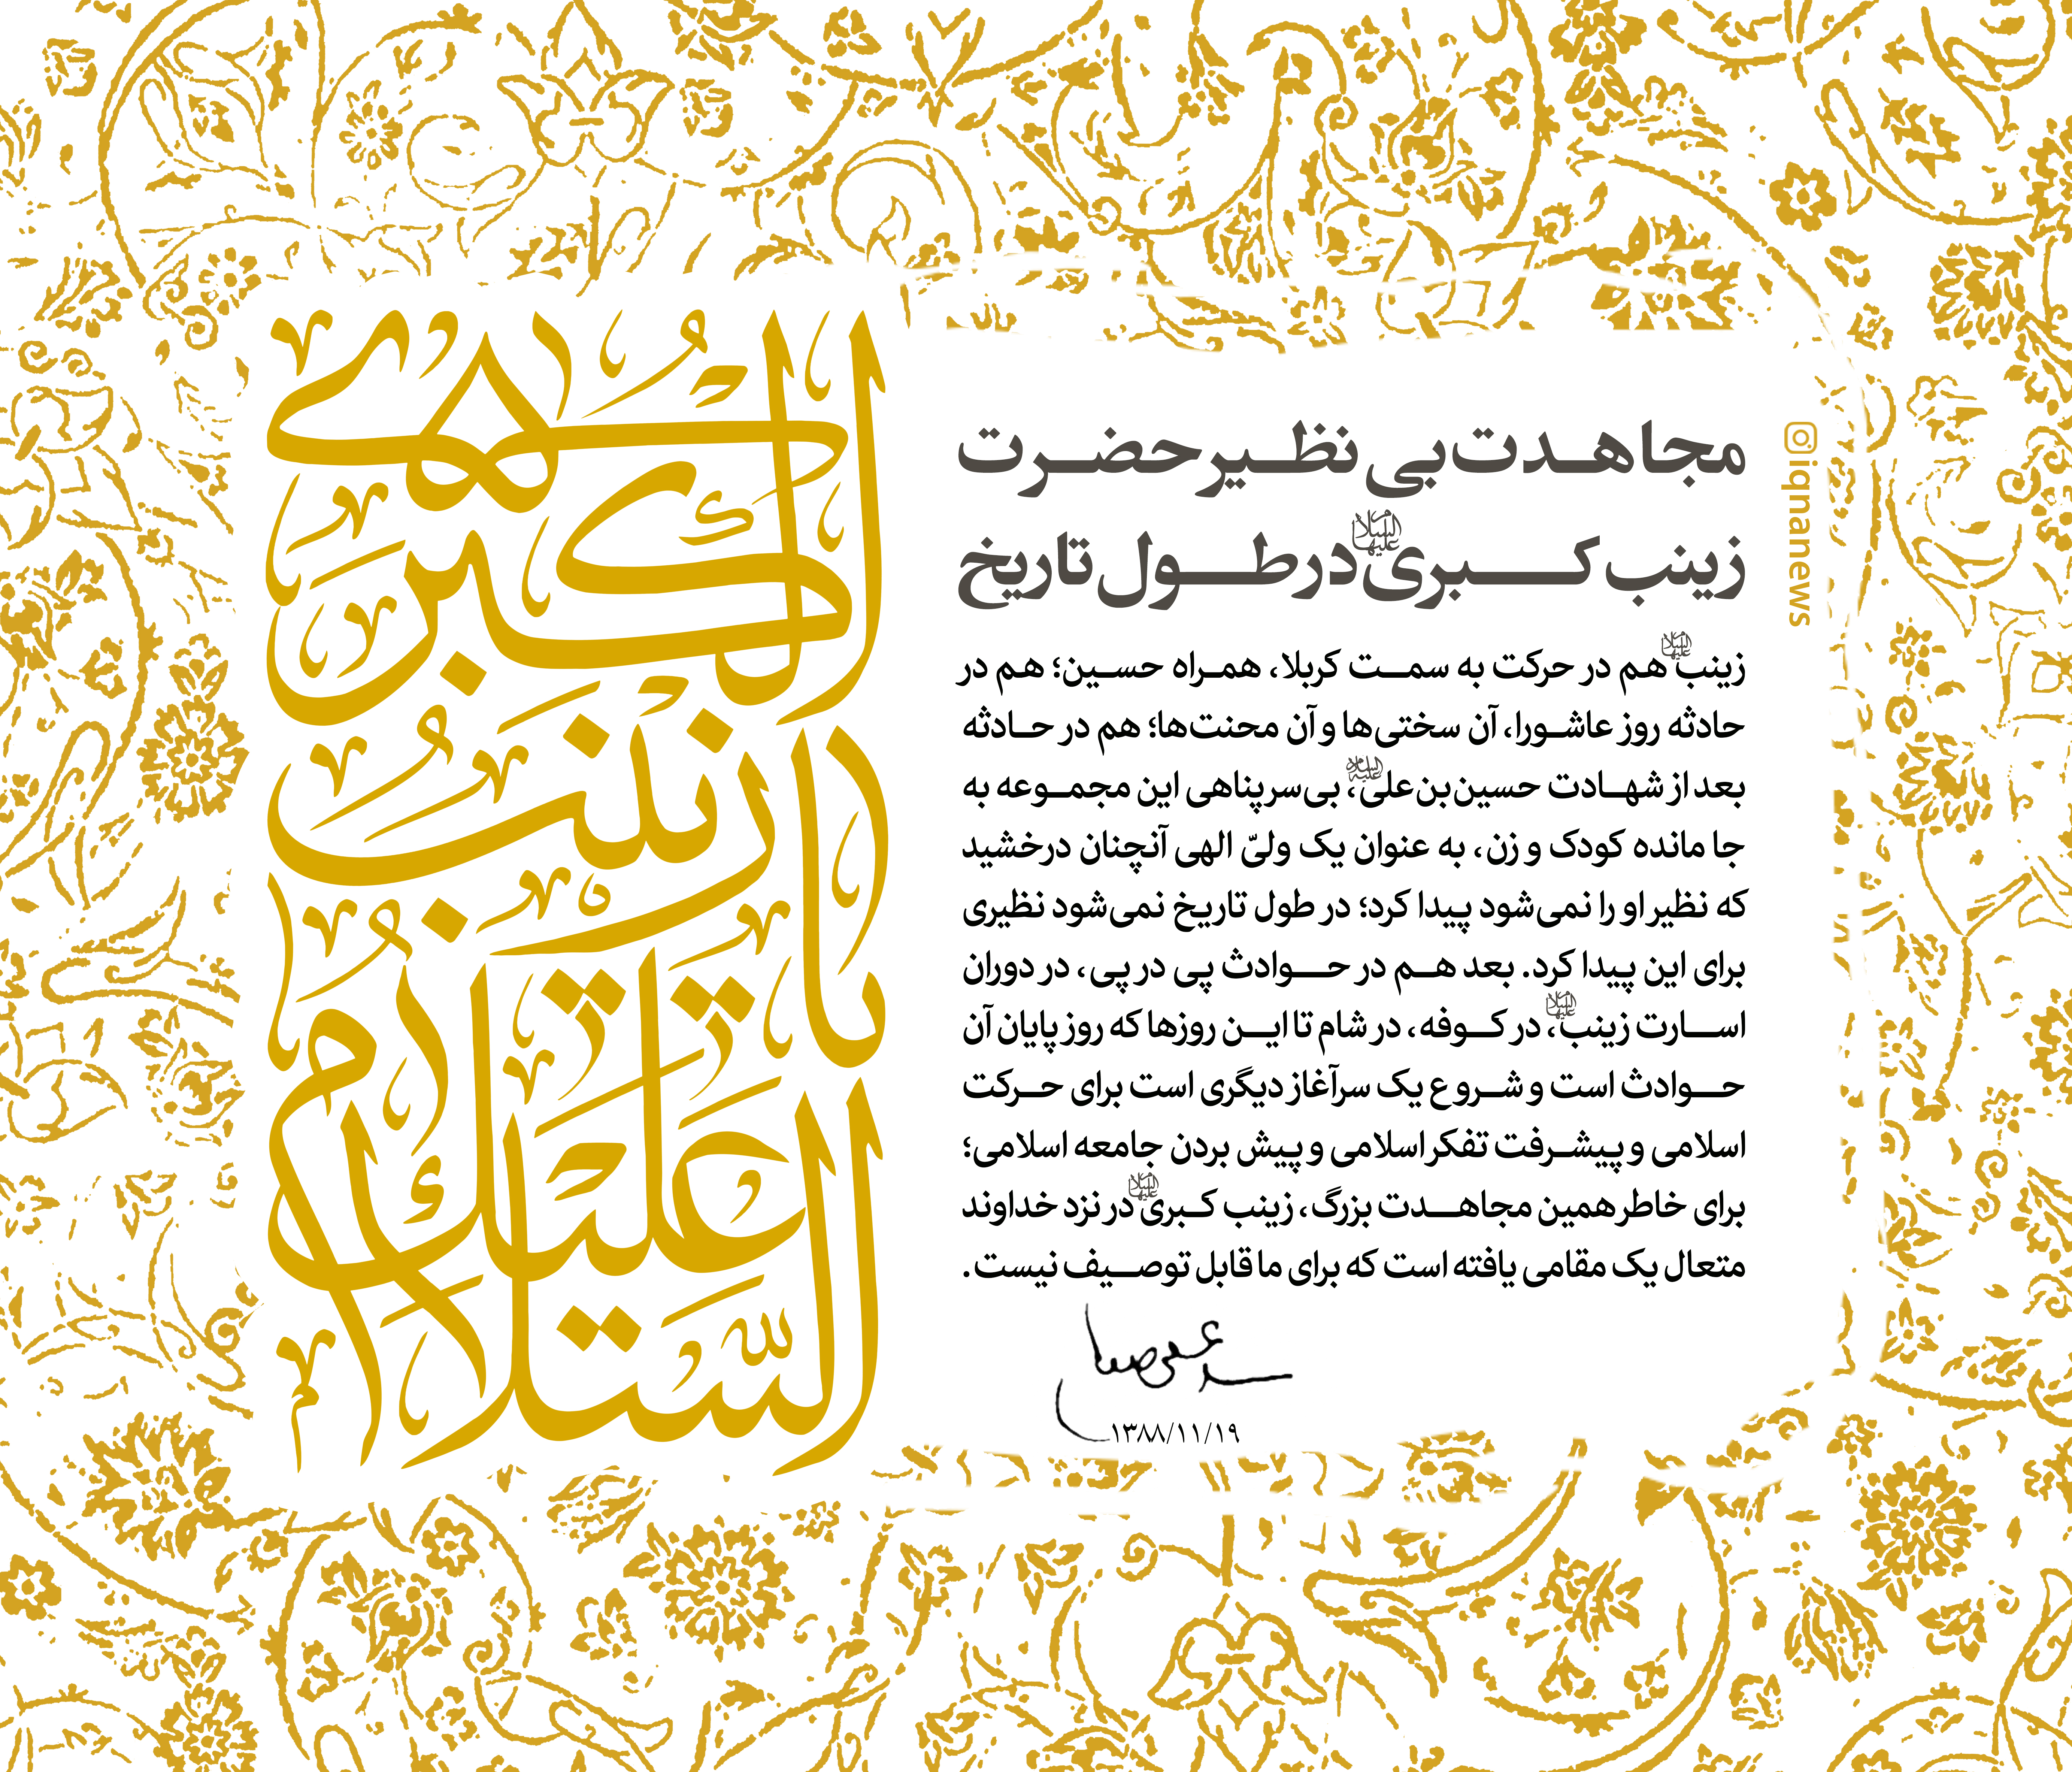 مجاهدت بی نظیر حضرت
زینب کبری علیهاالسلام در طول تاریخ
زینب علیهاالسلام هم در حرکت به سمت کربلا، همراه حسین؛ هم در
حادثه روز عاشورا، آن سختی‌ها و آن محنت‌ها؛ هم در حادثه
بعد از شهادت حسین‌بن‌علی علیه‌السلام، بی‌سرپناهی این مجموعه به
جا مانده کودک و زن، به عنوان یک ولیّ الهی آنچنان درخشید
که نظیر او را نمی‌شود پیدا کرد؛ در طول تاریخ نمی‌شود نظیری
برای این پیدا کرد. بعد هم در حوادث پی در پی، در دوران
اسارت زینب علیهاالسلام، در کوفه، در شام تا این روزها که روز پایان آن
حوادث است و شروع یک سرآغاز دیگری است برای حرکت
اسلامی و پیشرفت تفکر اسلامی و پیش بردن جامعه اسلامی؛
برای خاطر همین مجاهدت بزرگ، زینب کبری علیهاالسلام در نزد خداوند
متعال یک مقامی یافته است که برای ما قابل توصیف نیست.
۱۳۸۸/۱۱/۱۹
السَّلامُ
عَلَیْكِ
یا زَیْنَبُ
الْكُبْری
iqnanews